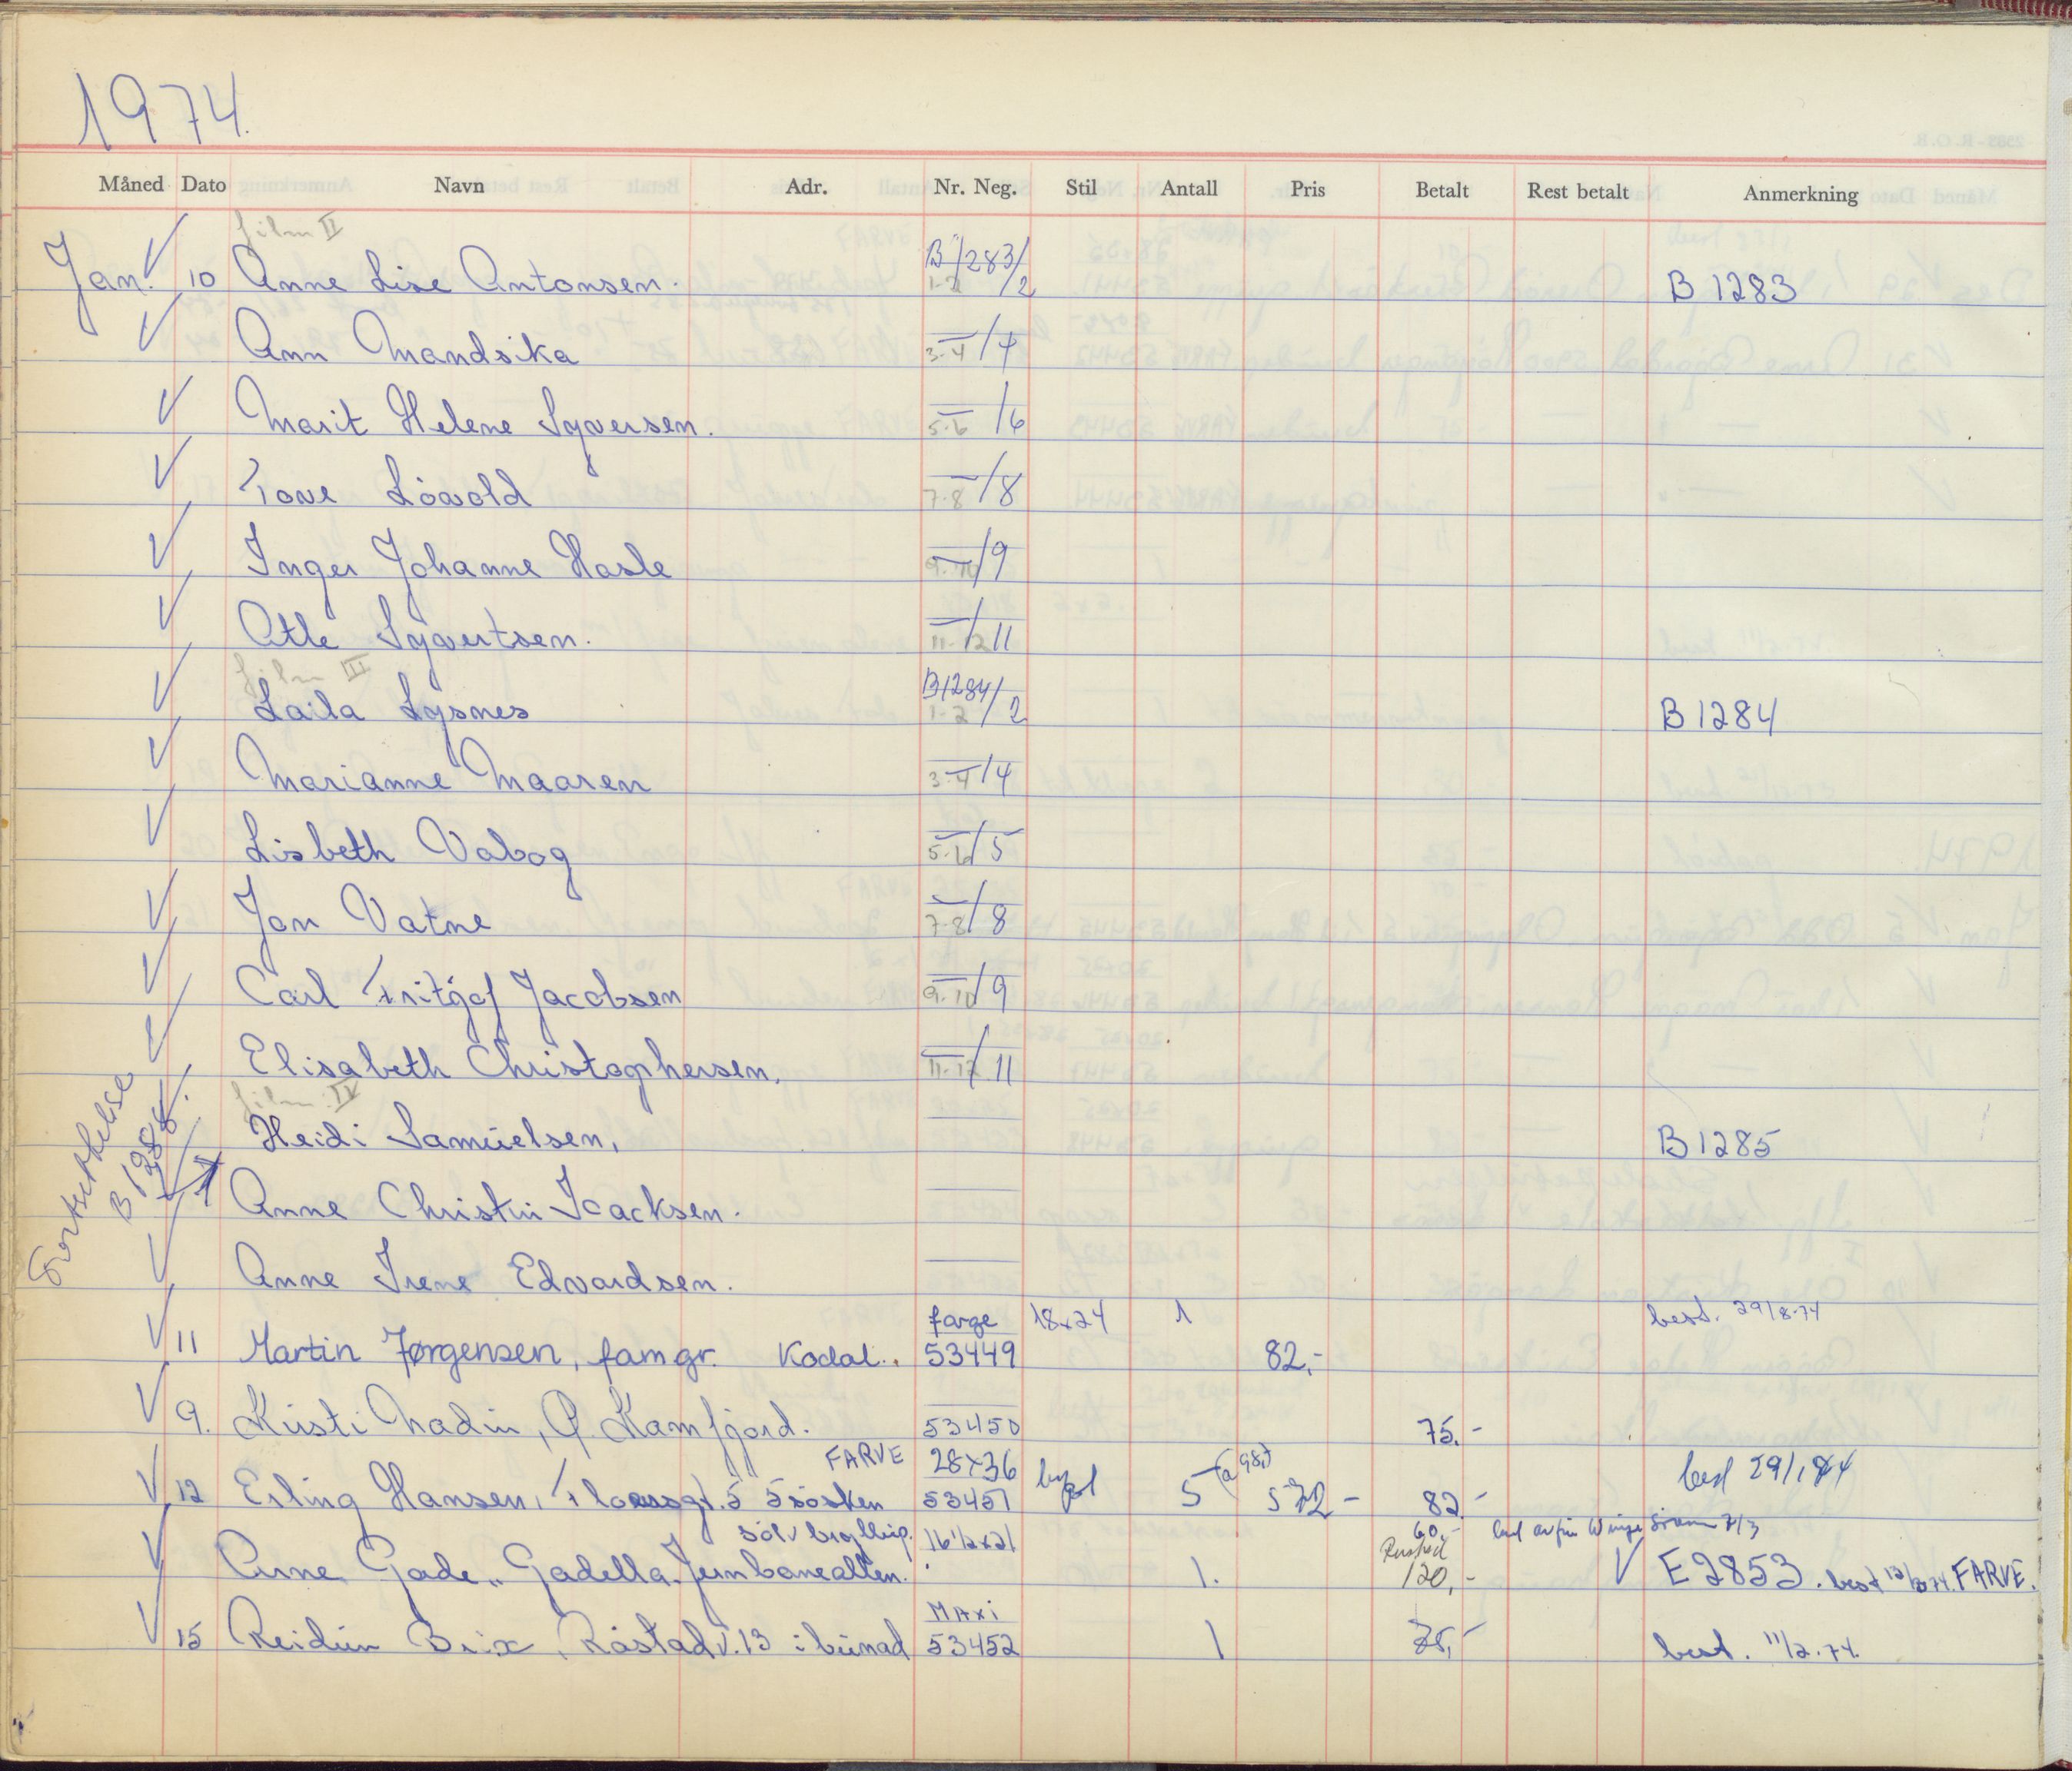 1974.
Måned Dato Navn Adr. Nr. Neg. Stil Antall Pris Betalt Rest betalt Anmerkning
film II
Jan. √ 10 Anne Lise Antonsen. B1283/2 1-2 B 1283
√ Ann Mandsika — /4 3-4
√ Marit Helene Syversen. — /6 5-6
√ Tove Lövold — /8 7-8
√ Inger Johanne Hasle — /9 9-10
√ Atle Syvertsen. — /11 11-12
film III
√ Laila Lysnes B1284/2 1-2 B 1284
√ Marianne Maaren — /4 3-4
√ Lisbeth Vabog — /5 5-6
√ Jan Vatne — /8 7-8
√ Carl Fritjof Jacobsen — /9 9-10
√ Elisabeth Christophersen. — /11 11-12
film IV
√ Heidi Samuelsen, — B 1285
Fortsettelse B 1288.
√ Anne Christin Isacksen. —
√ Anne Irene Edvardsen. —
farge 18x24 1 best. 29/8-74
√ 11 Martin Jørgensen, famgr. Kodal. 53449 82,-
√ 9. Kirsti Nadin, Q. Kamfjord. 53450 75.-
FARVE 28x36 (a 98,)
√ 12 Erling Hansen, 5 søsken 53451 5 572- 82.- best 29/1
sölv bryllup. 16½x21 60,-
√ Arne Gade, Gadella. Jernbanealleen. 1. 120,- √ E2853. best FARVE.
MAXI
√ 15 Reidun Brix, Råstadv. 13 i bunad 53452 1 75,- best. 11/2.74.